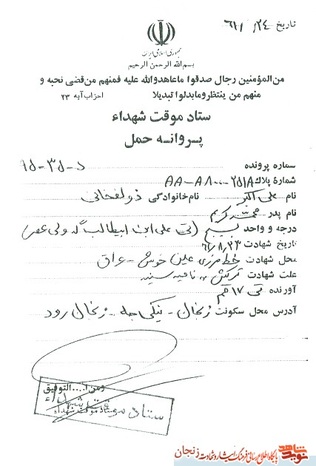 تاریخ ۲۴ / ۶۱
جمهوری اسلامی ایران
بسم الله الرحمن الرحیم
من المؤمنین رجال صدقوا ما عاهدوا الله علیه فمنهم من قضی نحبه و
منهم من ینتظر و ما بدلوا تبدیلا احزاب آیه ۲۳
ستاد موقت شهداء
پروانه حمل
شماره پرونده ۱۵-۳۵-د
شماره پلاک AA-A۸۰۰۰۲۵۱۸
نام علی اکبر نام خانوادگی ذوالفخانی
نام پدر محمد کریم
درجه و واحد بسیج علی ابن ابیطالب
تاریخ شهادت ۶۱/۸/۲۳
محل شهادت خط مرزی عین خوش - عراق
علت شهادت ترکش ناحیه سینه
آورنده
آدرس محل سکونت زنجال - نیکی جه - زنجال رود
و من ا... التوفیق
ستاد موقت شهداء
نوید شاهد
پایگاه اطلاع رسانی فرهنگ ایثار و شهادت زنجان